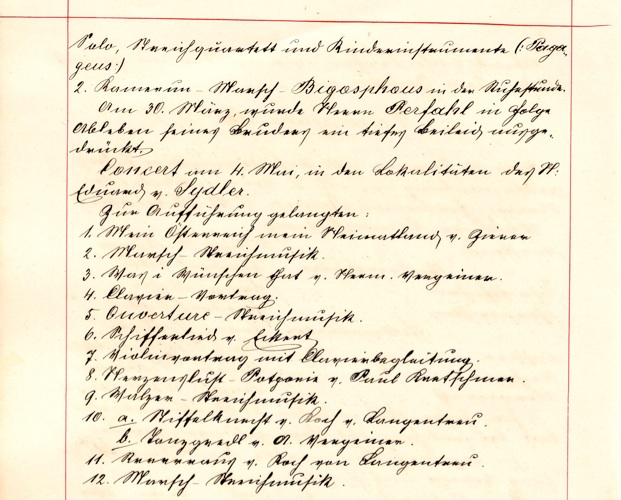 Solo, Streichquartett und Kinderinstrumente (:
geus:)
2. Kamerun – Marsch – Bigosphons in der Ruhestunde.
Am 30. März, wurde Herrn Perfahl in Folge
Ableben seines Bruders ein tiefes Beileid ausge-
drückt.
Concert am 4. Mai, in den Lokalitäten des H:
Eduard v. Sydler.
Zur Aufführung gelangten:
1. Mein Österreich mein Heimatland, v.
2. Marsch – Streichmusik.
3. Was i Wünschen hat v. Herm. Vergeiner.
4. Clavier – Vortrag.
5. Ouverture – Streichmusik.
6. Schifferlied v. Eckert
7. Violinvortrag mit Clavierbegleitung.
8. Herzenslust – Potporie v. Paul Kretschmer.
9. Walzer – Streichmusik.
10. a. Stiffelknecht v. Koch v. Langentreu.
b. v. A. Vergeiner.
11. v. Koch von Langentreu.
12. Marsch – Streichmusik.